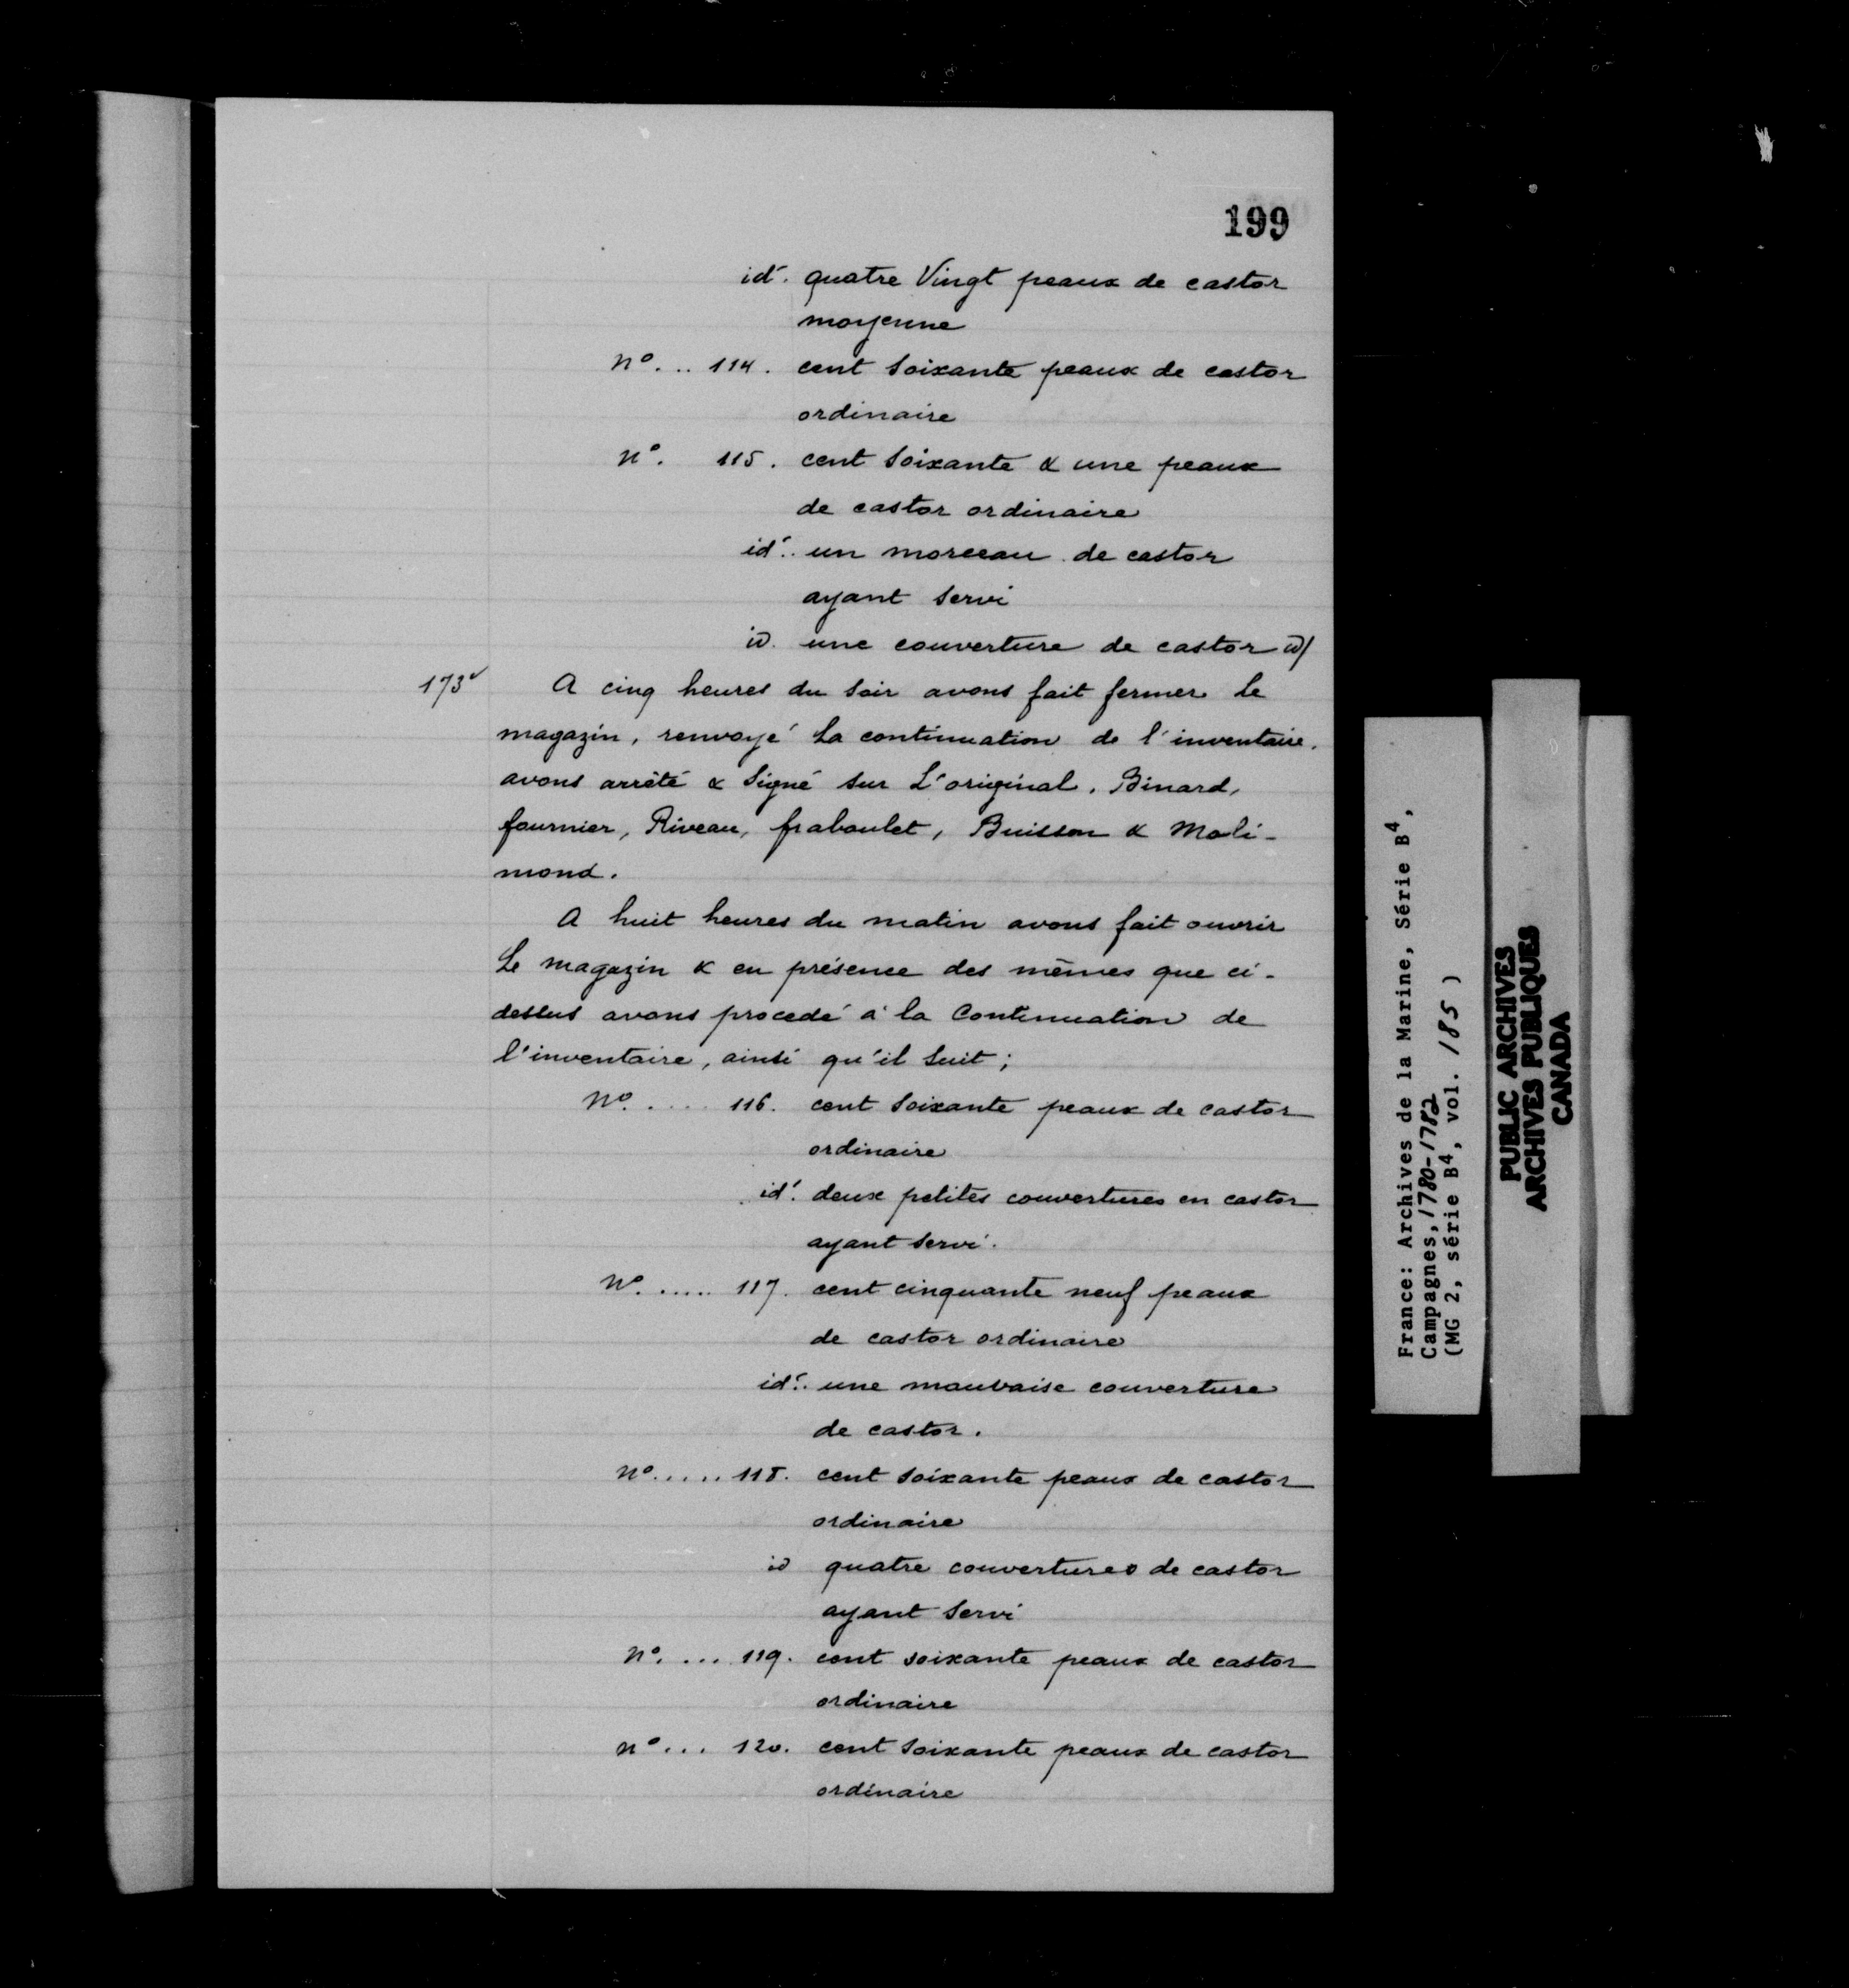 199
id. quatre Vingt peaux de castor
moyenne
nº... 114. cent soixante peaux de castor
ordinaire
nº. 115. cent soixante & une peaux
de castor ordinaire
id. un morceau de castor
ayant servi
id. une couverture de castor id/
173v A cinq heures du soir avons fait fermer le
magazin, renvoyé la continuation de l'inventaire.
avons arrêté & signé sur L'original. Binard,
fournier, Riveau, fraboulet, Buisson & Mali-
mond.
A huit heures du matin avons fait ouvrir
Le magazin & en présence des mêmes que ci-
dessus avons procedé à la Continuation de
l'inventaire, ainsi qu'il suit;
Nº..... 116. cent soixante peaux de castor
ordinaire
id. deux petites couvertures en castor
ayant servi.
Nº...... 117. cent cinquante neuf peaux
de castor ordinaire
id. une mauvaise couverture
de castor.
Nº..... 118. cent soixante peaux de castor
ordinaire
id quatre couvertures de castor
ayant servi
Nº.... 119. cent soixante peaux de castor
ordinaire
nº... 120. cent soixante peaux de castor
ordinaire
France: Archives de la Marine, Série B4,
Campagnes, 1780-1782
(MG 2, série B4, vol. 185 )
PUBLIC ARCHIVES
ARCHIVES PUBLIQUES
CANADA